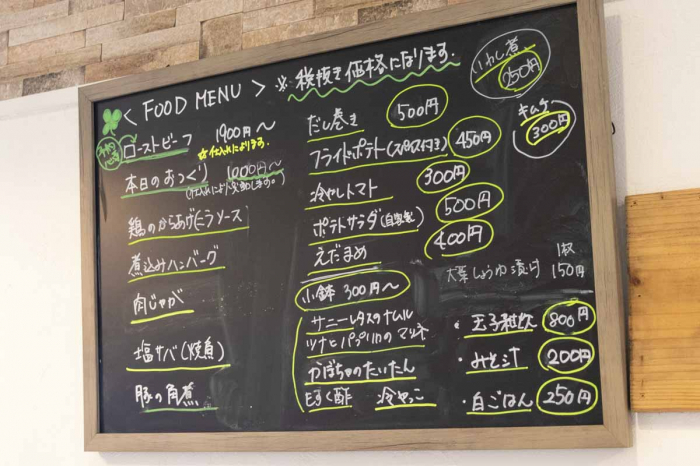 < FOOD MENU > ※ 税抜き価格になります.
ローストビーフ 1900円〜
☆仕入れによります.
本日のおつくり 1000円〜
鶏のからあげ(ニラソース
煮込みハンバーグ
肉じゃが
塩サバ(焼魚)
豚の角煮
だし巻き 500円
フライドポテト( 付き) 450円
冷やしトマト 300円
ポテトサラダ(自家製) 500円
えだまめ 400円
小鉢 300円〜
サニーレタスのナムル
ツナとパプリカのマリネ
かぼちゃのたいたん
もずく酢 冷やっこ
いわし煮 250円
キムチ 300円
大葉しょうゆ漬け 1枚 150円
・玉子雑炊 800円
・みそ汁 200円
・白ごはん 250円